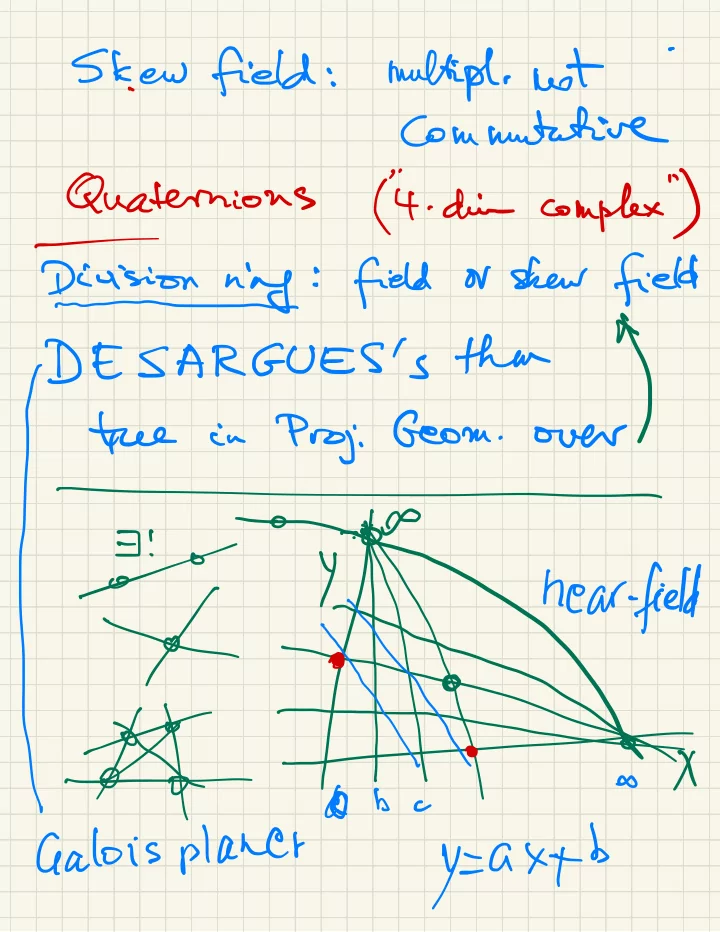 Skew field: multipl. not
commutative
Quaternions ("4-dim complex")
Division ring: field or skew field
DESARGUES's thm
true in Proj. Geom. over
∃!
∞
Y
near-field
X
∞
b c
Galois planes
y=ax+b